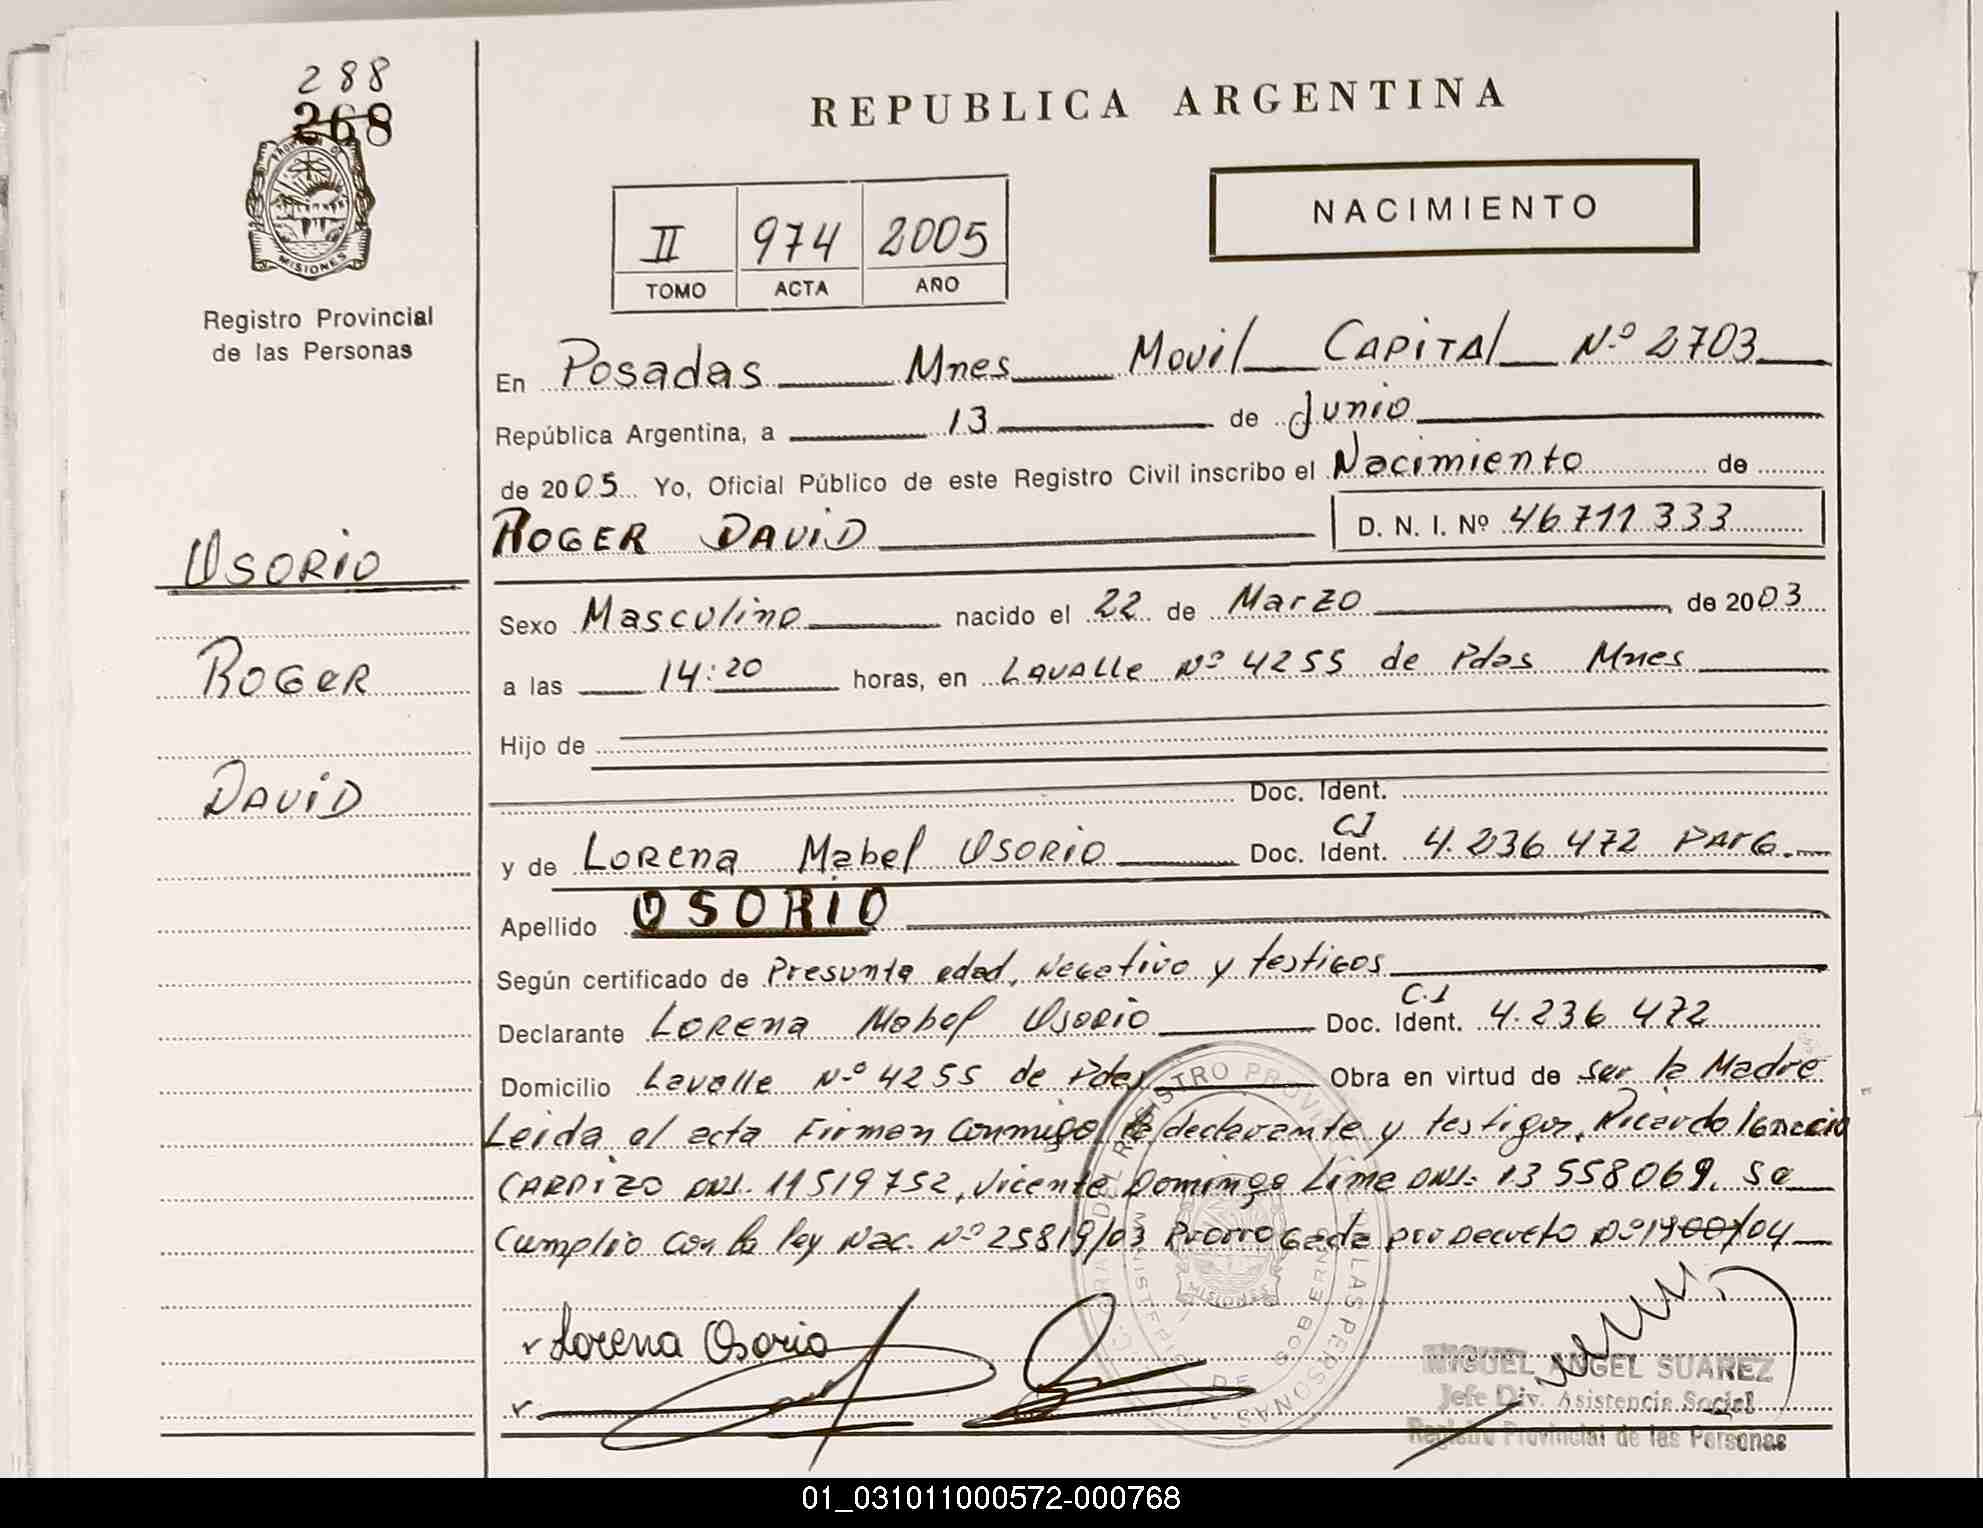 288
268
REPUBLICA ARGENTINA
PROVINCIA DE
MISIONES
Registro Provincial
de las Personas
II 974 2005
TOMO ACTA AÑO
NACIMIENTO
En Posadas Mnes Movil CAPITAL Nº 2703
República Argentina, a 13 de Junio
de 2005 Yo, Oficial Público de este Registro Civil inscribo el Nacimiento de
ROGER DAVID D. N. I. Nº 46711333
OSORIO
ROGER
DAVID
Sexo Masculino nacido el 22 de Marzo de 2003
a las 14:20 horas, en LAVALLE Nº 4255 de Pdas Mnes
Hijo de
Doc. Ident.
y de LORENA Mabel OSORIO Doc. Ident. CI 4.236.472 PArG.
Apellido OSORIO
Según certificado de Presunta edad, Negativo y testigos
Declarante LORENA Mabel OSORIO Doc. Ident. C.I 4.236 472
Domicilio Lavalle Nº 4255 de Pdas Obra en virtud de ser la Madre
Leida el acta Firman Conmigo la declarante y testigos, Ricardo Ignacio
DNI. 11519752, Vicente Domingo Lima DNI: 13558069. Se
Cumplio con la ley Nac. Nº 25819/03 Prorrogada por Decreto /04
Lorena Osorio
DEL REGISTRO PROVINCIAL DE LAS PERSONAS
MINISTERIO DE GOBIERNO
MISIONES
MIGUEL ANGEL SUAREZ
Jefe Div. Asistencia Social
Registro Provincial de las Personas
01_031011000572-000768